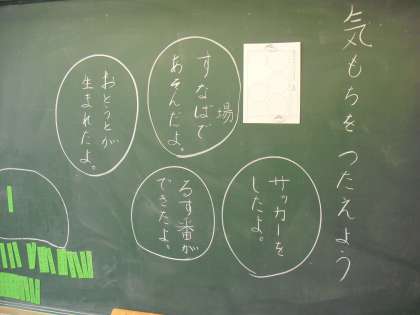 気もちを つたえよう
すなばで
場
あそんだよ。
おとうとが
生まれたよ。
サッカーを
したよ。
るす番が
できたよ。